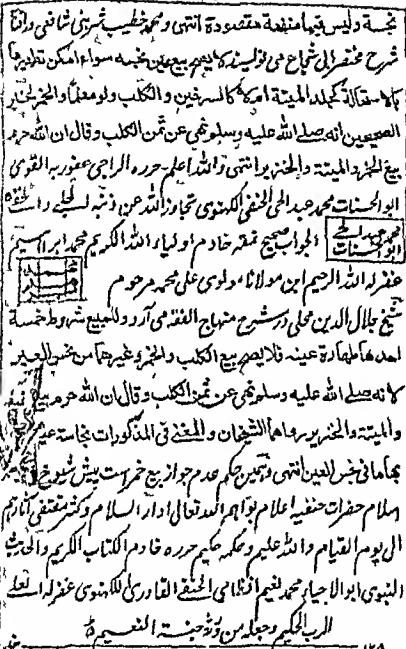 نجسة وليس فيها منفعة مقصودة انتهى ومحمد خطيب شربيني شافعي در اقناع
شرح مختصر ابى شجاع مى نويسد لا يصح بيع عين نجسه سواء امكن تطهيرها
بالاستحالة كجلد الميتة ام لا كالسرجين والكلب ولو معلما والخمر لخبر
الصحيحين انه صلى الله عليه وسلم نهى عن ثمن الكلب وقال ان الله حرم
بيع الخمر والميتة والخنزير انتهى والله اعلم حرره الراجى عفو ربه القوى
ابو الحسنات محمد عبد الحى الحنفى اللكهنوى تجاوز الله عن ذنبه الجلى والخفى
محمد عبد الحى ابو الحسنات الجواب صحيح نمقه خادم اولياء الله الكريم محمد ابراهيم
غفر له الله الرحيم ابن مولانا مولوى على محمد مرحوم
شيخ جلال الدين محلى در شرح منهاج الفقه مى آرد وللمبيع شروط خمسة
احدها طهارة عينه فلا يصح بيع الكلب والخمر وغيرهما من نجس العين
لانه صلى الله عليه وسلم نهى عن ثمن الكلب وقال ان الله حرم بيع الخمر
والميتة والخنزير رواهما الشيخان والمعنى فى المذكورات نجاسة عينها
بها ما فى نجس العين انتهى وهمين حكم عدم جواز بيع خمر است پيش شيوخ
اسلام حضرات حنفيه اعلام بوأهم الله تعالى دار السلام وكثر مقتفى آثارهم
الى يوم القيام والله عليم وعلمه حكيم حرره خادم الكتاب الكريم والحديث
النبوى ابو الاحياء محمد نعيم النظامى الحنفى القادرى اللكهنوى غفر له العلى
الرب الحكيم وجعله من ورثة جنة النعيم